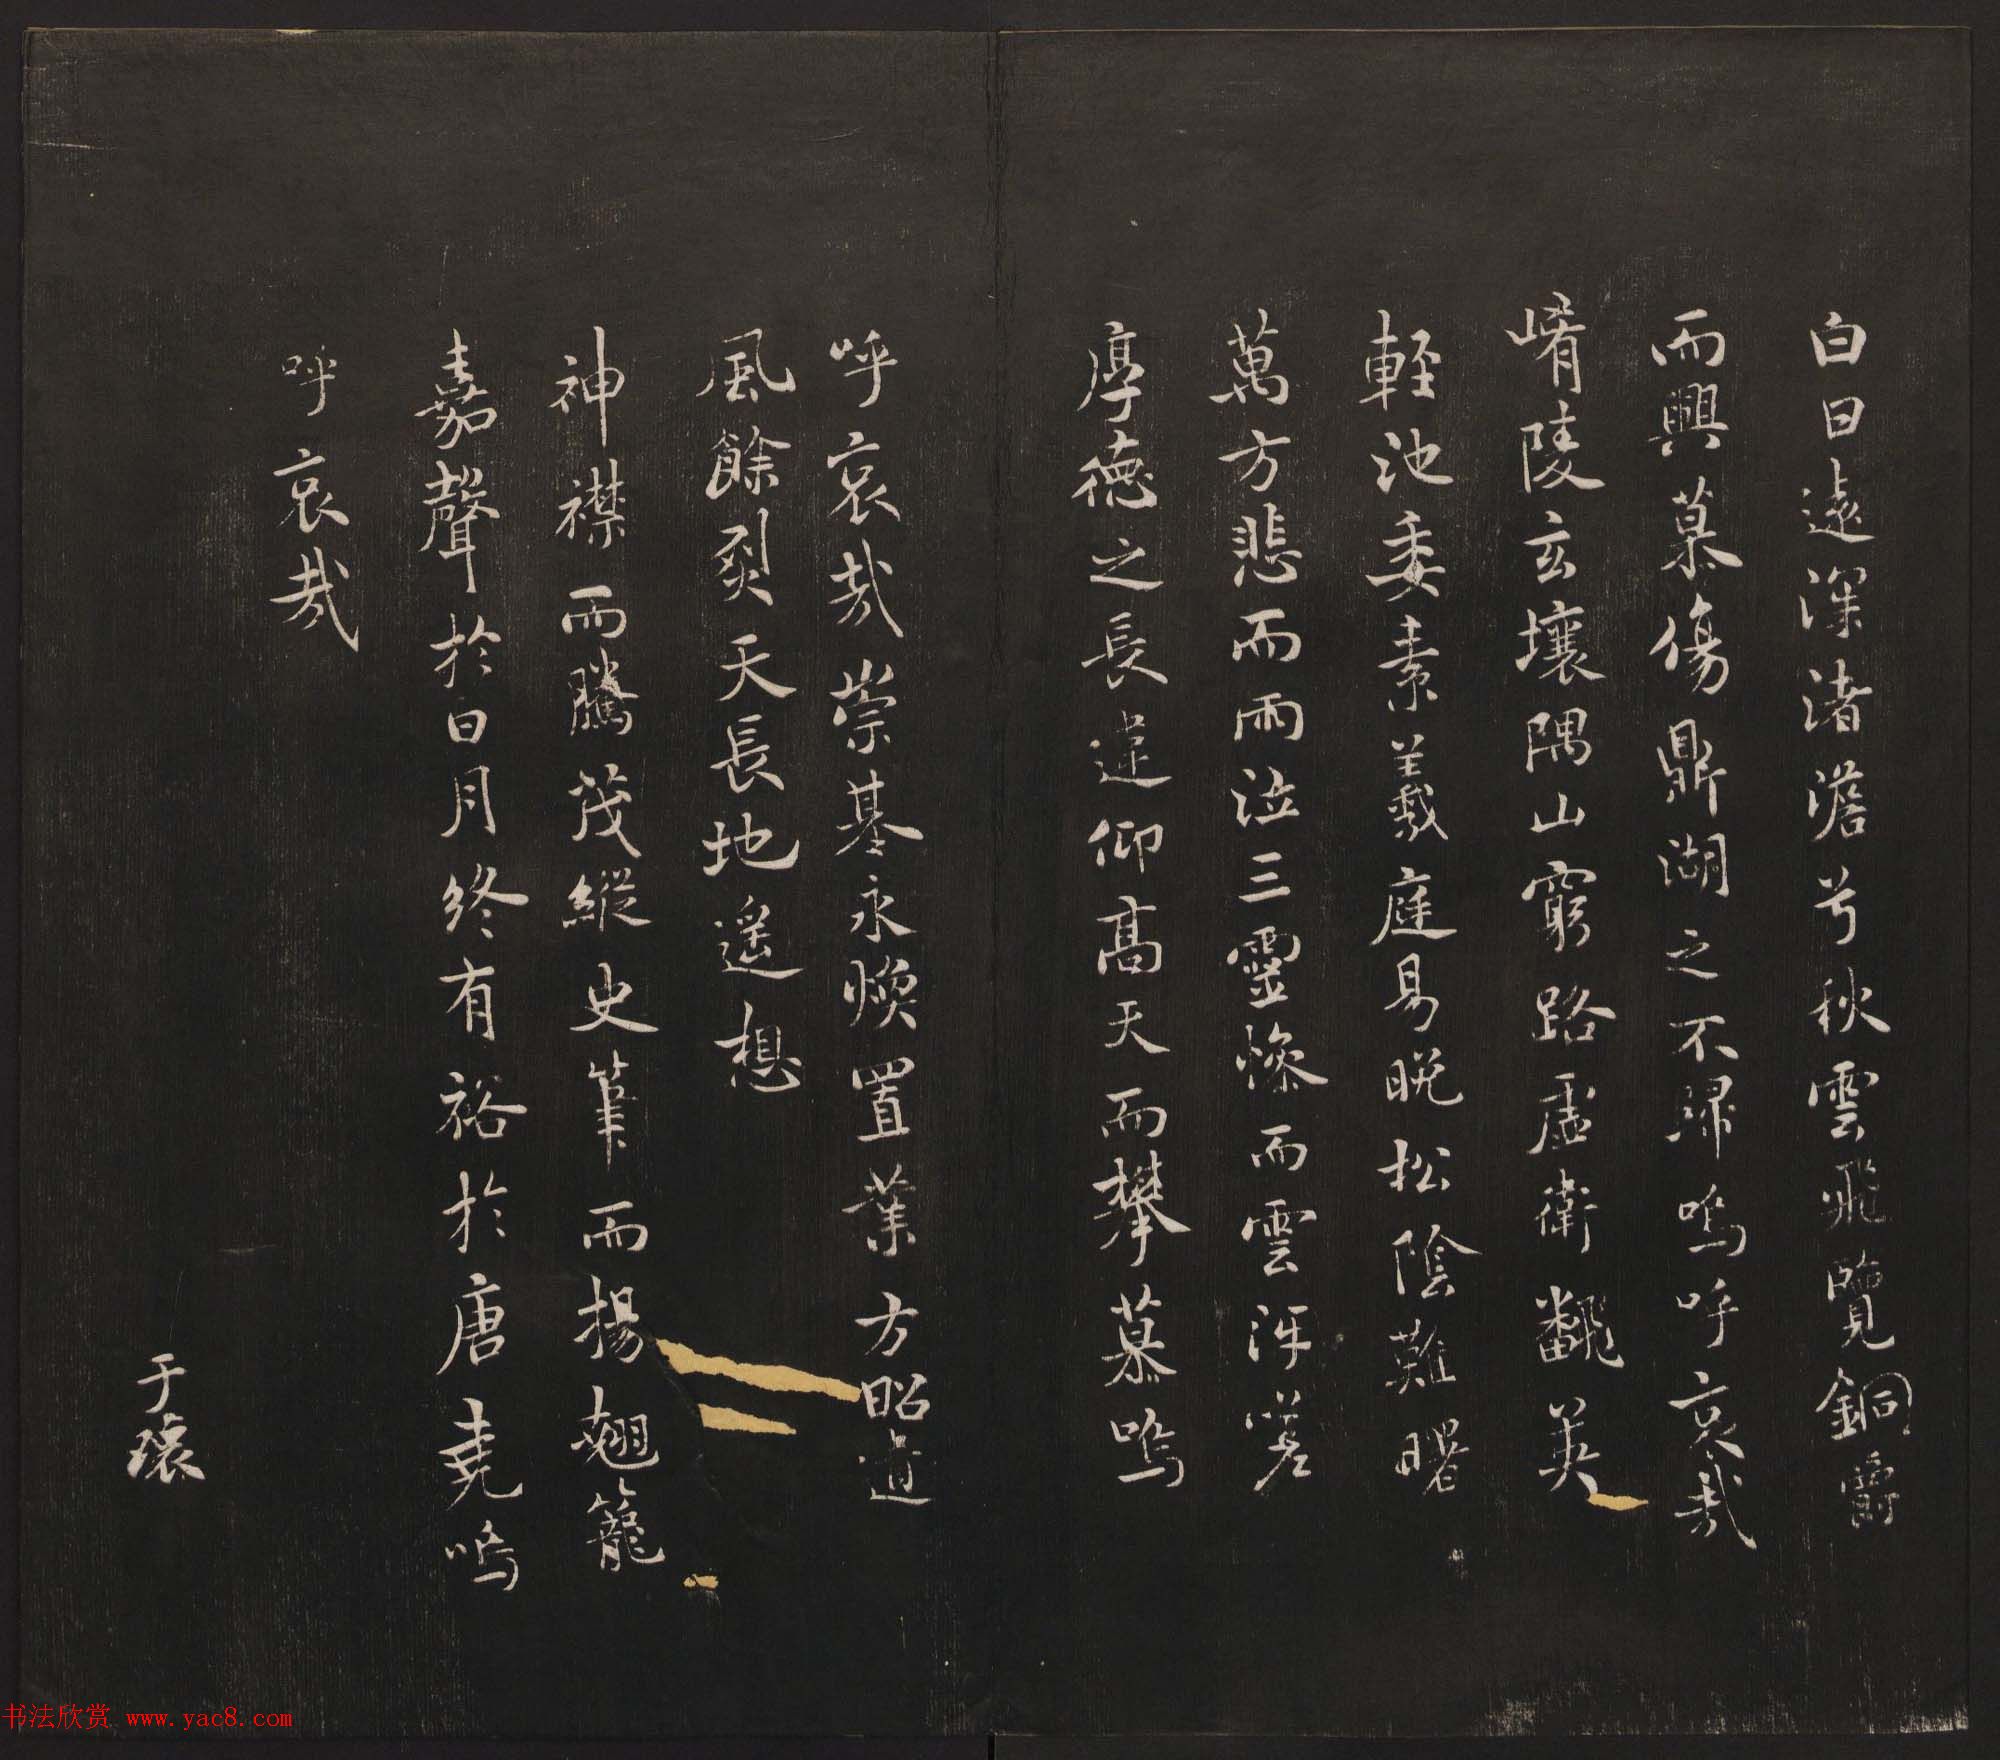 白日遠深渚澹兮秋雲飛覽銅爵
而興慕傷鼎湖之不歸嗚呼哀哉
崤陵玄壤隅山窮路虛衛翻英
輕池委素羲庭易晚松陰難曙
萬方悲而雨泣三靈慘而雲沍嗟
厚德之長違仰高天而攀慕嗚
呼哀哉崇基永煥置業方昭道
風餘烈天長地遥想
神襟而騰茂縱史筆而揚翹籠
嘉聲於日月終有裕於唐堯嗚
呼哀哉
于瓌
书法欣赏 www.yac8.com